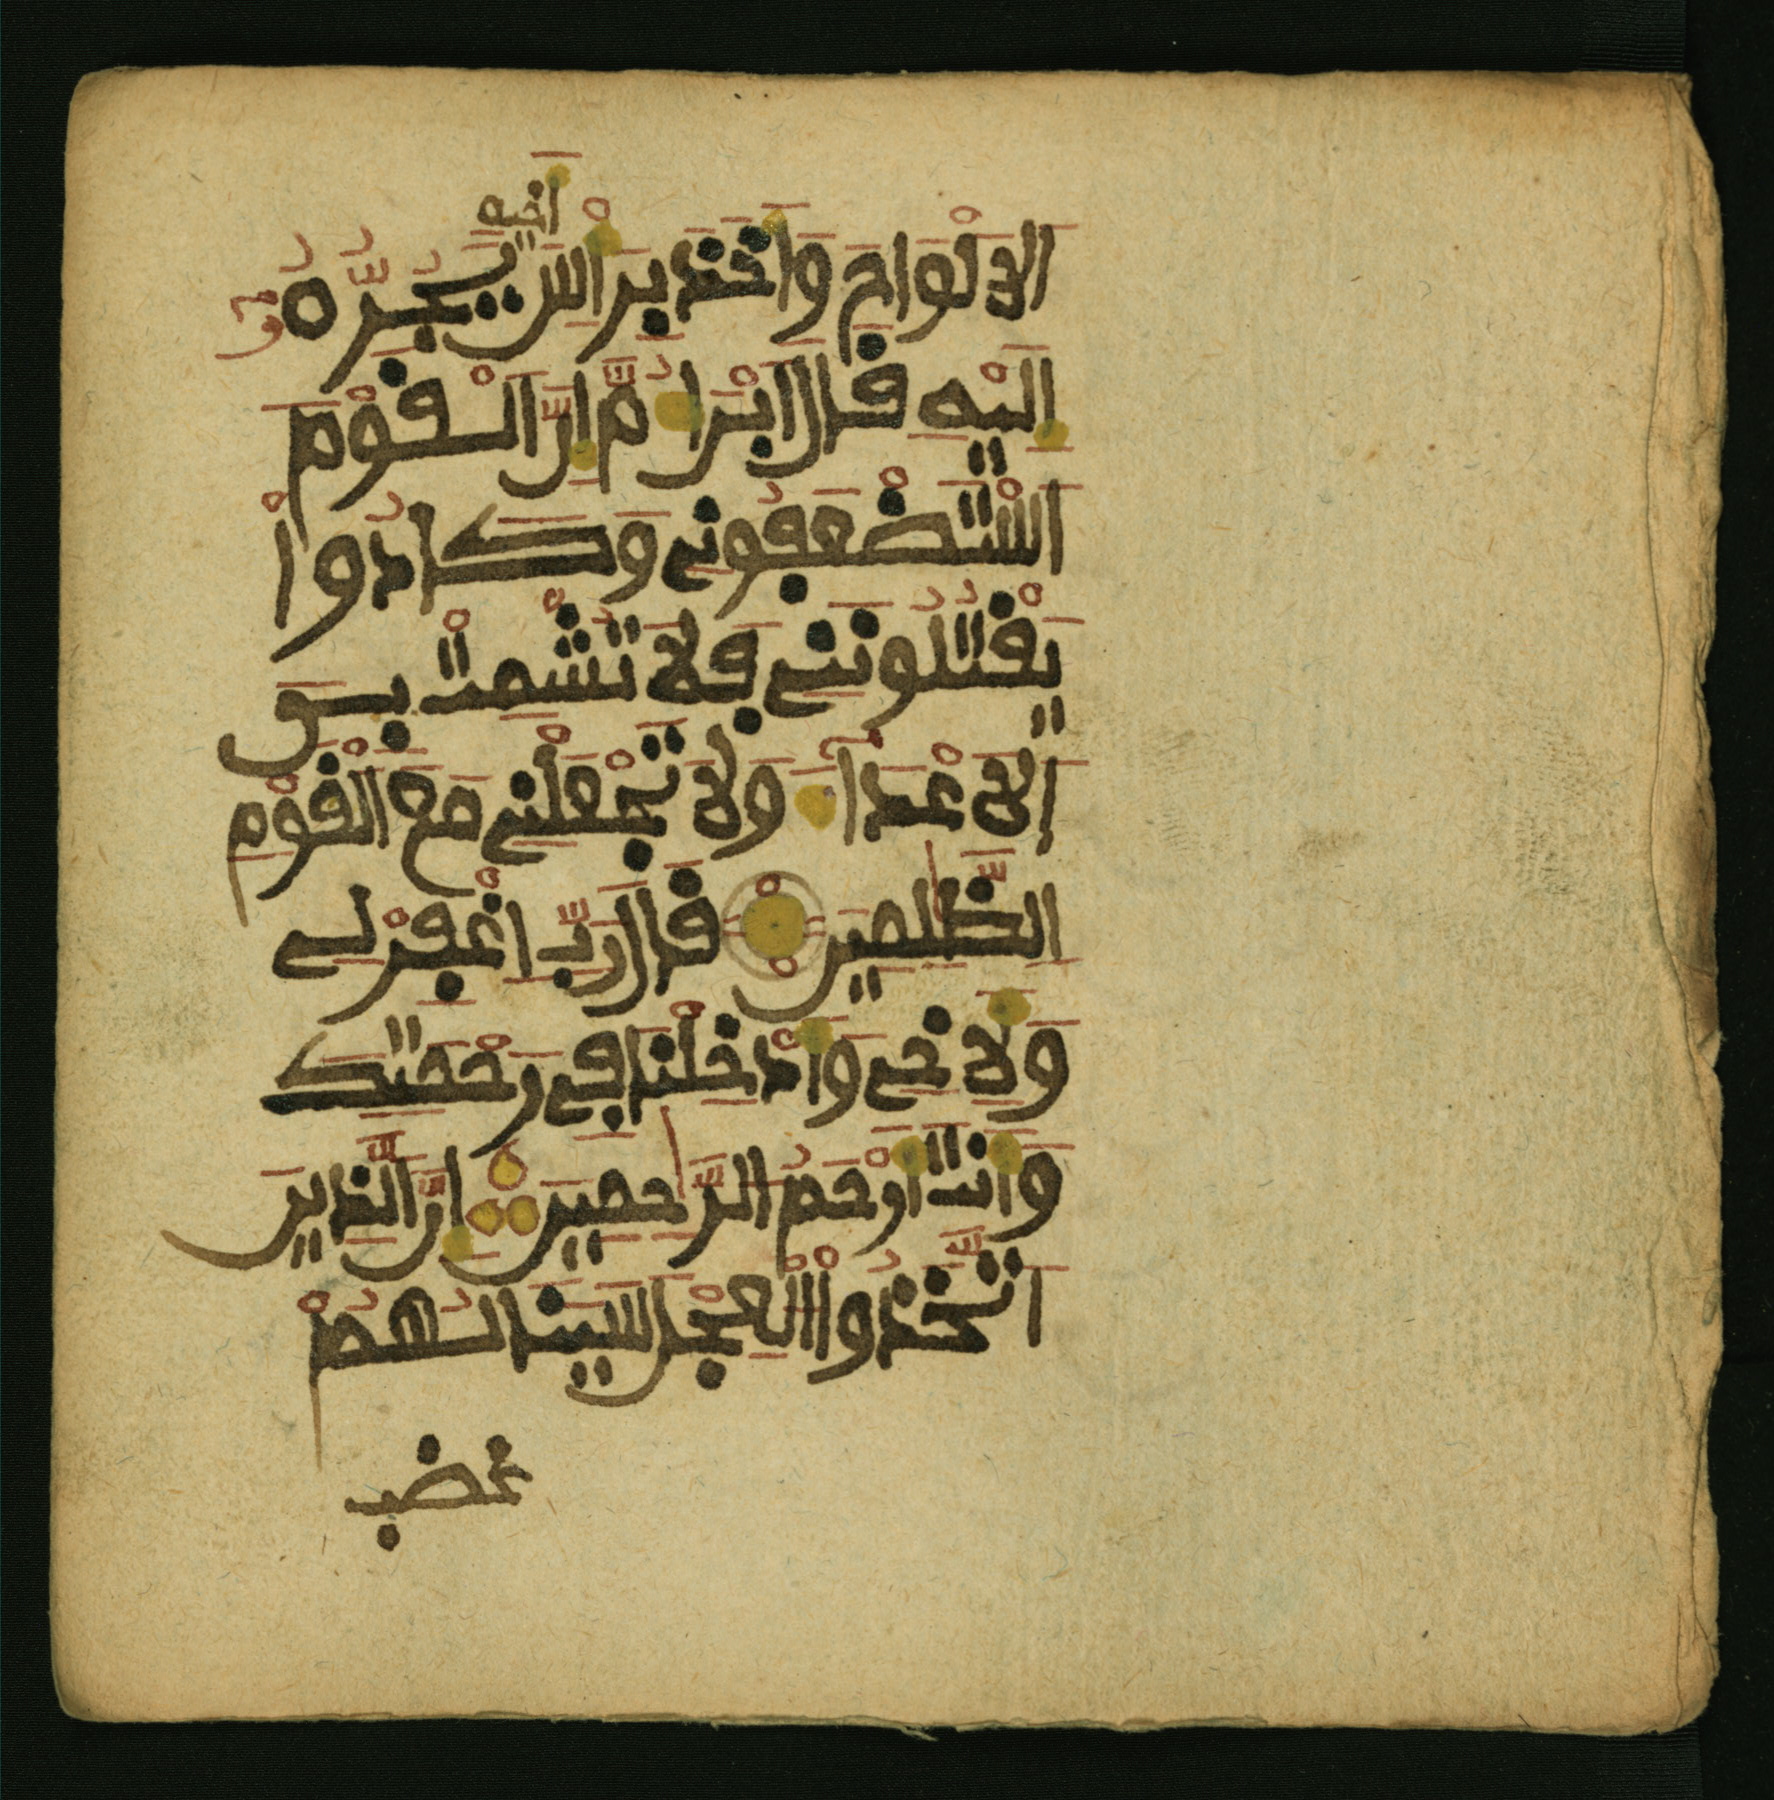 اخِيهِ
الَالْوَاحَ وَأَخَذَ بِرَأْسِ يَجُرُّهُ
إِلَيْهِ قَالَ ابْنَ أُمَّ إِنَّ الْقَوْمَ
اسْتَضْعَفُونِي وَكَادُوا
يَقْتُلُونَنِي فَلَا تُشْمِتْ بِيَ
الَاعْدَآءَ وَلَا تَجْعَلْنِي مَعَ الْقَوْمِ
الظَّٰلِمِينَ قَالَ رَبِّ اغْفِرْ لِي
وَلِأَخِي وَأَدْخِلْنَا فِي رَحْمَتِكَ
وَأَنتَ أَرْحَمُ الرَّٰحِمِينَ إِنَّ الَّذِينَ
اتَّخَذُوا الْعِجْلَ سَيَنَالُهُمْ
غضب